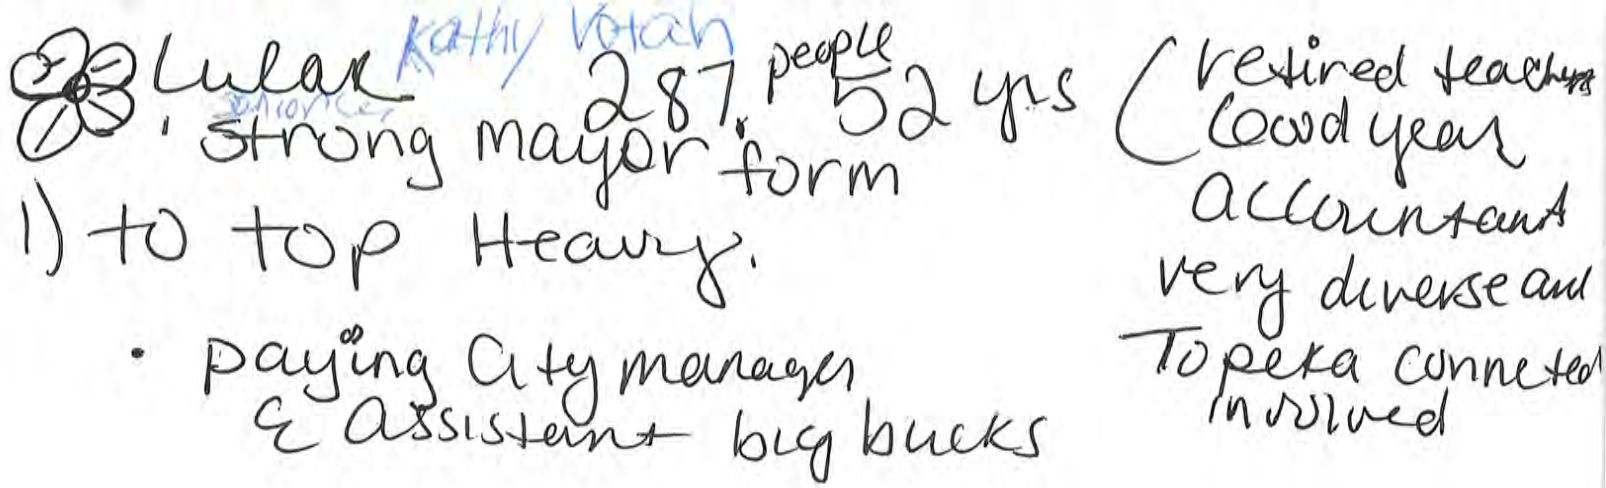 Kathy Votah
Lulax 287 people 52 yrs
· strong mayor form
1) to top Heavy.
• paying City manager
& Assistant big bucks
(retired teachers
Good year
accountant
very diverse and
Topeka conneted
involved